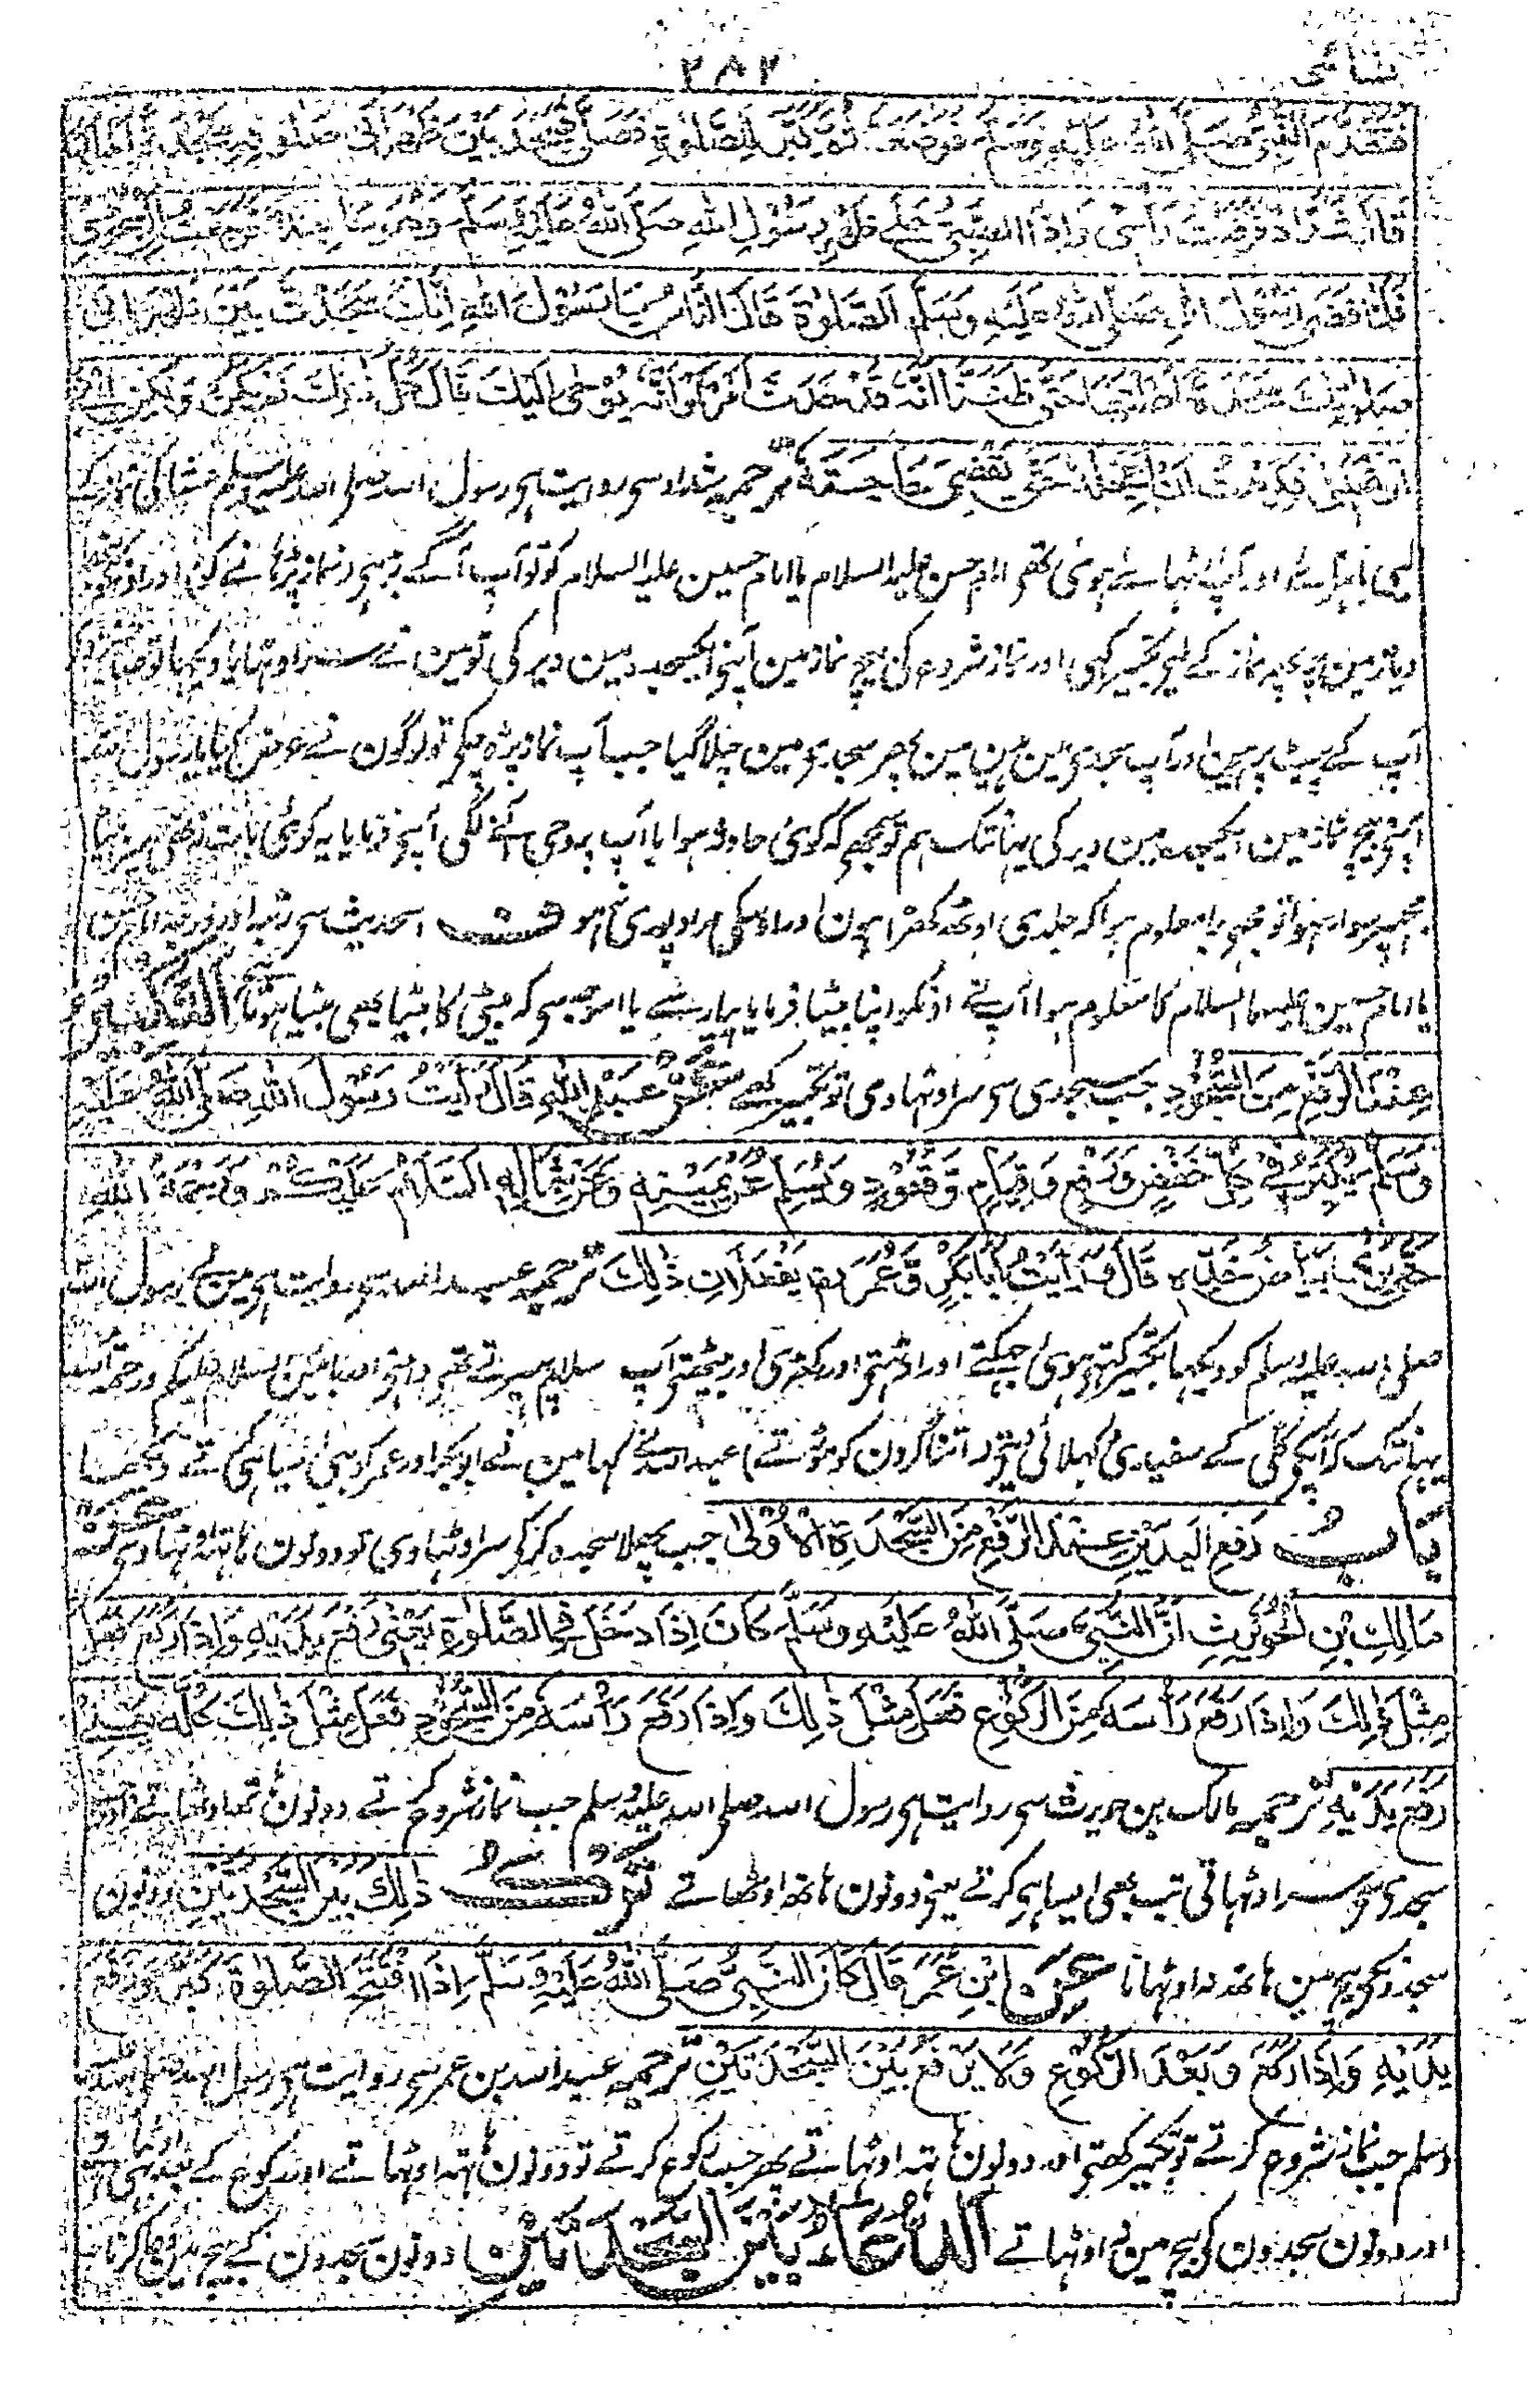 نسائی
۲۸۲
فَتَقَدَّمَ النَّبِیُّ صَلَّی اللهُ عَلَیْهِ وَسَلَّمَ فَوَضَعَهُ ثُمَّ کَبَّرَ لِلصَّلٰوةِ فَصَلّٰی فَسَجَدَ بَیْنَ ظَهْرَانَیْ صَلٰوتِهِ سَجْدَةً اَطَالَهَا
قَالَ شَدَّادٌ فَرَفَعْتُ رَاْسِیْ وَاِذَا الصَّبِیُّ عَلٰی ظَهْرِ رَسُوْلِ اللهِ صَلَّی اللهُ عَلَیْهِ وَسَلَّمَ وَهُوَ سَاجِدٌ فَرَجَعْتُ اِلٰی سُجُوْدِیْ
فَلَمَّا قَضٰی رَسُوْلُ اللهِ صَلَّی اللهُ عَلَیْهِ وَسَلَّمَ الصَّلٰوةَ قَالَ النَّاسُ یَا رَسُوْلَ اللهِ اِنَّکَ سَجَدْتَ بَیْنَ ظَهْرَانَیْ
صَلٰوتِکَ سَجْدَةً اَطَلْتَهَا حَتّٰی ظَنَنَّا اَنَّهُ قَدْ حَدَثَ اَمْرٌ اَوْ اَنَّهُ یُوْحٰی اِلَیْکَ قَالَ کُلُّ ذٰلِکَ لَمْ یَکُنْ وَلٰکِنَّ
ابْنِیْ فَکَرِهْتُ اَنْ اُعَجِّلَهُ حَتّٰی یَقْضِیَ حَاجَتَهُ ترجمہ شداد سی روایت ہی رسول اللہ صلی اللہ علیہ وسلم عشا کی نماز کے
لیی باہر آئے اور آپ اٹھائے ہوئی تھی امام حسن علیہ السلام یا امام حسین علیہ السلام کو تو آپ آگے بڑہی نماز پڑہانے کو اور انکو
دیا زمین پر پھر نماز کے لیی تکبیر کہی اور نماز شروع کی بیچ نماز مین اپنی ایک سجدہ مین دیر کی تو مین نے سر اوٹھایا دیکھا تو صاحبزادے
آپ کے پیٹ پر ہین اور آپ سجدی مین ہین مین پھر سجدہ مین چلا گیا جب آپ نماز پڑہ چکی تو لوگون نے عرض کیا یا رسول اللہ
اپنی بیچ نماز مین ایک سجدہ مین دیر کی یہانتک ہم تو سمجھی کہ کوئی حادثہ ہوا یا آپ پر وحی آنے لگی آپنی فرمایا یہ کوئی بات نہ تھی میرا بیٹا
مجھ پر سوار ہوا تو مجھی برا معلوم ہوا کہ جلدی اوٹھ کھڑا ہون اور اوسکی مراد پوری نہ ہو ف اس حدیث سی رتبہ اور درجہ امام حسن
یا امام حسین علیہما السلام کا معلوم ہوا آپ نے اونکو اپنا بیٹا فرمایا پیار سے یا اس وجہ سی کہ بیٹی کا بیٹا بھی بیٹا ہوتا ہی التَّکْبِیْرُ
عِنْدَ الرَّفْعِ مِنَ السُّجُوْدِ جب سجدی سی سر اوٹھاوی تو تکبیر کہے عَنْ عَبْدِ اللهِ قَالَ رَاَیْتُ رَسُوْلَ اللهِ صَلَّی اللهُ عَلَیْهِ
وَسَلَّمَ یُکَبِّرُ فِیْ کُلِّ خَفْضٍ وَرَفْعٍ وَقِیَامٍ وَّقُعُوْدٍ وَیُسَلِّمُ عَنْ یَمِیْنِهِ وَعَنْ شِمَالِهِ اَلسَّلَامُ عَلَیْکُمْ وَرَحْمَةُ اللهِ
حَتّٰی یُرٰی بَیَاضُ خَدِّهِ قَالَ وَرَاَیْتُ اَبَا بَکْرٍ وَّعُمَرَ یَفْعَلَانِ ذٰلِکَ ترجمہ عبد اللہ سی روایت ہی مین نے رسول اللہ
صلی اللہ علیہ وسلم کو دیکھا تکبیر کہتی ہوئی جھکتے اور اوٹھتی اور کھڑی اور بیٹھتی آپ سلام پھیرتے تھی داہنی اور بائین السلام علیکم ورحمۃ اللہ
یہانتک کہ آپکی گال کی سفیدی دکھلائی دیتی (اتنا گردن کو موڑتے) عبداللہ نے کہا مین نے ابوبکر اور عمر کو بھی ایسا ہی کرتے دیکھا
بَابُ رَفْعِ الْیَدَیْنِ عِنْدَ الرَّفْعِ مِنَ السَّجْدَةِ الْاُوْلٰی جب پہلا سجدہ کر کر سر اوٹھاوی تو دونون ہاتھ اوٹھاوی عَنْ
مَالِکِ بْنِ الْحُوَیْرِثِ اَنَّ النَّبِیَّ صَلَّی اللهُ عَلَیْهِ وَسَلَّمَ کَانَ اِذَا دَخَلَ فِی الصَّلٰوةِ یَعْنِیْ رَفَعَ یَدَیْهِ وَاِذَا رَکَعَ فَعَلَ
مِثْلَ ذٰلِکَ وَاِذَا رَفَعَ رَاْسَهُ مِنَ الرُّکُوْعِ فَعَلَ مِثْلَ ذٰلِکَ وَاِذَا رَفَعَ رَاْسَهُ مِنَ السُّجُوْدِ فَعَلَ مِثْلَ ذٰلِکَ کُلِّهِ یَعْنِیْ
رَفَعَ یَدَیْهِ ترجمہ مالک بن حویرث سی روایت ہی رسول اللہ صلی اللہ علیہ وسلم جب نماز شروع کرتے دونون ہاتھ اوٹھاتے اور
سجدی سی سر اوٹھاتی تب بھی ایسا ہی کرتے یعنی دونون ہاتھ اوٹھاتے تَرْکُ ذٰلِکَ بَیْنَ السَّجْدَتَیْنِ دونون
سجدونکی بیچ مین ہاتھ نہ اوٹھانا عَنِ ابْنِ عُمَرَ قَالَ کَانَ النَّبِیُّ صَلَّی اللهُ عَلَیْهِ وَسَلَّمَ اِذَا افْتَتَحَ الصَّلٰوةَ کَبَّرَ وَرَفَعَ
یَدَیْهِ وَاِذَا رَکَعَ وَبَعْدَ الرُّکُوْعِ وَلَا یَرْفَعُ بَیْنَ السَّجْدَتَیْنِ ترجمہ عبداللہ بن عمر سی روایت ہی رسول اللہ صلی اللہ علیہ
وسلم جب نماز شروع کرتے تو تکبیر کہتی اور دونون ہاتھ اوٹھاتے پھر جب رکوع کرتے تو دونون ہاتھ اوٹھاتے اور رکوع کے بعد بھی اوٹھاتے
اور دونون سجدون کی بیچ مین نہ اوٹھاتے الدُّعَاءُ بَیْنَ السَّجْدَتَیْنِ دونون سجدون کے بیچ مین دعا کرنا